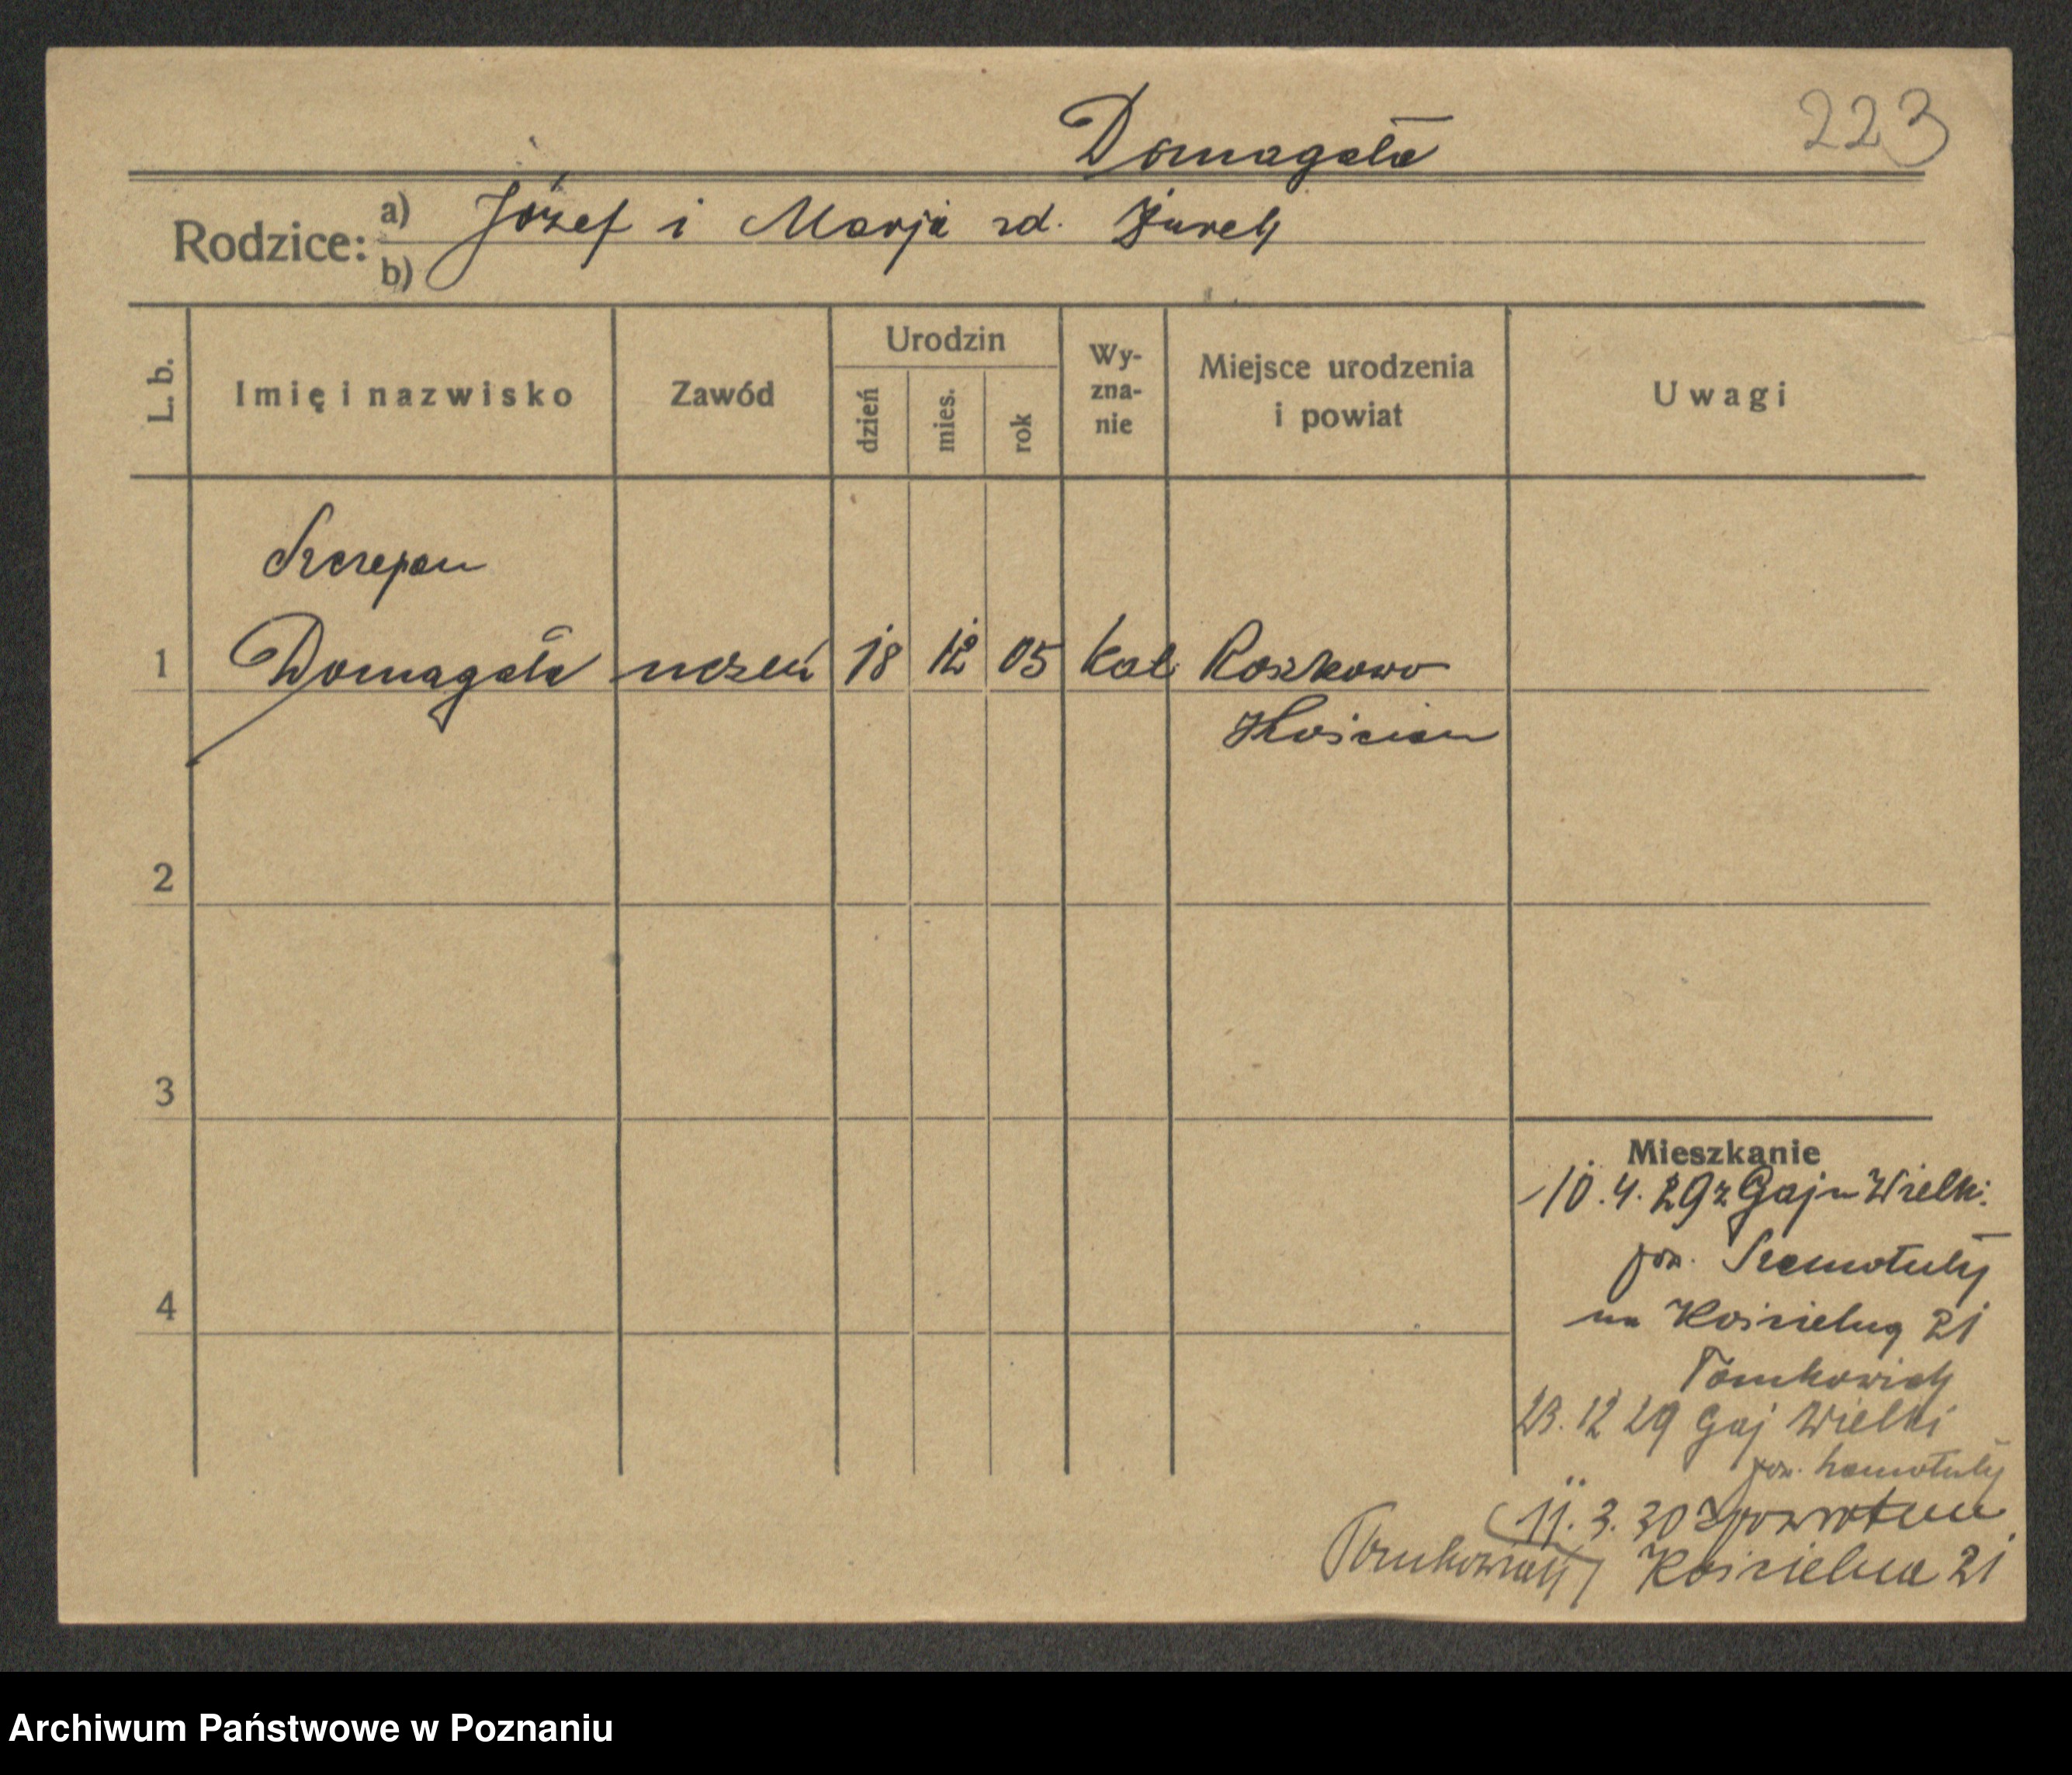 Domagała
223
Rodzice: a) Józef i Marja rd. Żurek
b)
L. b.
Imię i nazwisko
Zawód
Urodzin
dzień
mies.
rok
Wy-
zna-
nie
Miejsce urodzenia
i powiat
Uwagi
Szczepan
1 Domagała uczeń 18 12 05 kat Roszkowo
Kościan
2
3
4
Mieszkanie
10.4.29 z Gaju Wielk.
pow. Szamotuły
na Kościelną 21
Tomkowiak
23.12 29 Gaj Wielki
pow. Szamotuły
11.3.30 z powrotem
Tomkowiak Kościelna 21
Archiwum Państwowe w Poznaniu